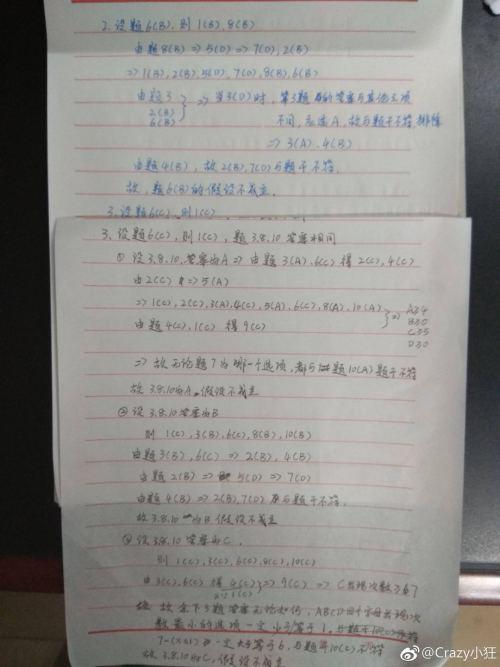 2. 设题6(B), 则1(B), 8(B)
由题8(B) => 5(D) => 7(D), 2(B)
=> 1(B), 2(B), 5(D), 7(D), 8(B), 6(B)
由题3
2(B)
6(B)
} => 当3(D)时, 第3题的答案与其他三项
不同, 应选A, 故与题干不符, 排除
=> 3(A), 4(B)
由题4(B), 故2(B), 7(D)与题干不符.
故, 题6(B)的假设不成立.
3. 设题6(C), 则1(C)
3. 设题6(C), 则1(C), 题3.8.10答案相同
① 设3.8.10.答案为A => 由题3(A), 6(C)得2(C), 4(C)
由2(C) => 5(A)
=> 1(C), 2(C), 3(A), 4(C), 5(A), 6(C), 8(A), 10(A)
由题4(C), 1(C)得9(C)
} =>
A34
B30
C35
D30
=> 故无论题7为哪一个选项, 都与题10(A)题干不符
故3.8.10为A, 假设不成立
② 设3.8.10答案为B
则1(C), 3(B), 6(C), 8(B), 10(B)
由题3(B), 6(C) => 2(B), 4(B)
由题2(B) => 5(D) => 7(D)
由题4(B) => 2(B), 7(D)与题干不符.
故3.8.10为B假设不成立
③ 设3.8.10答案为C.
则1(C), 3(C), 6(C), 8(C), 10(C)
由3(C), 6(C)得4(C)
1(C)
} => 9(C) => C出现次数≥67
故余下3题答案无论如何, ABCD四个字母出现次
数最少的选项一定小于等于1, 与题干10(C)
一定大于等于6, 与题10(C)不符
故3.8.10为C, 假设不成立
@Crazy小狂